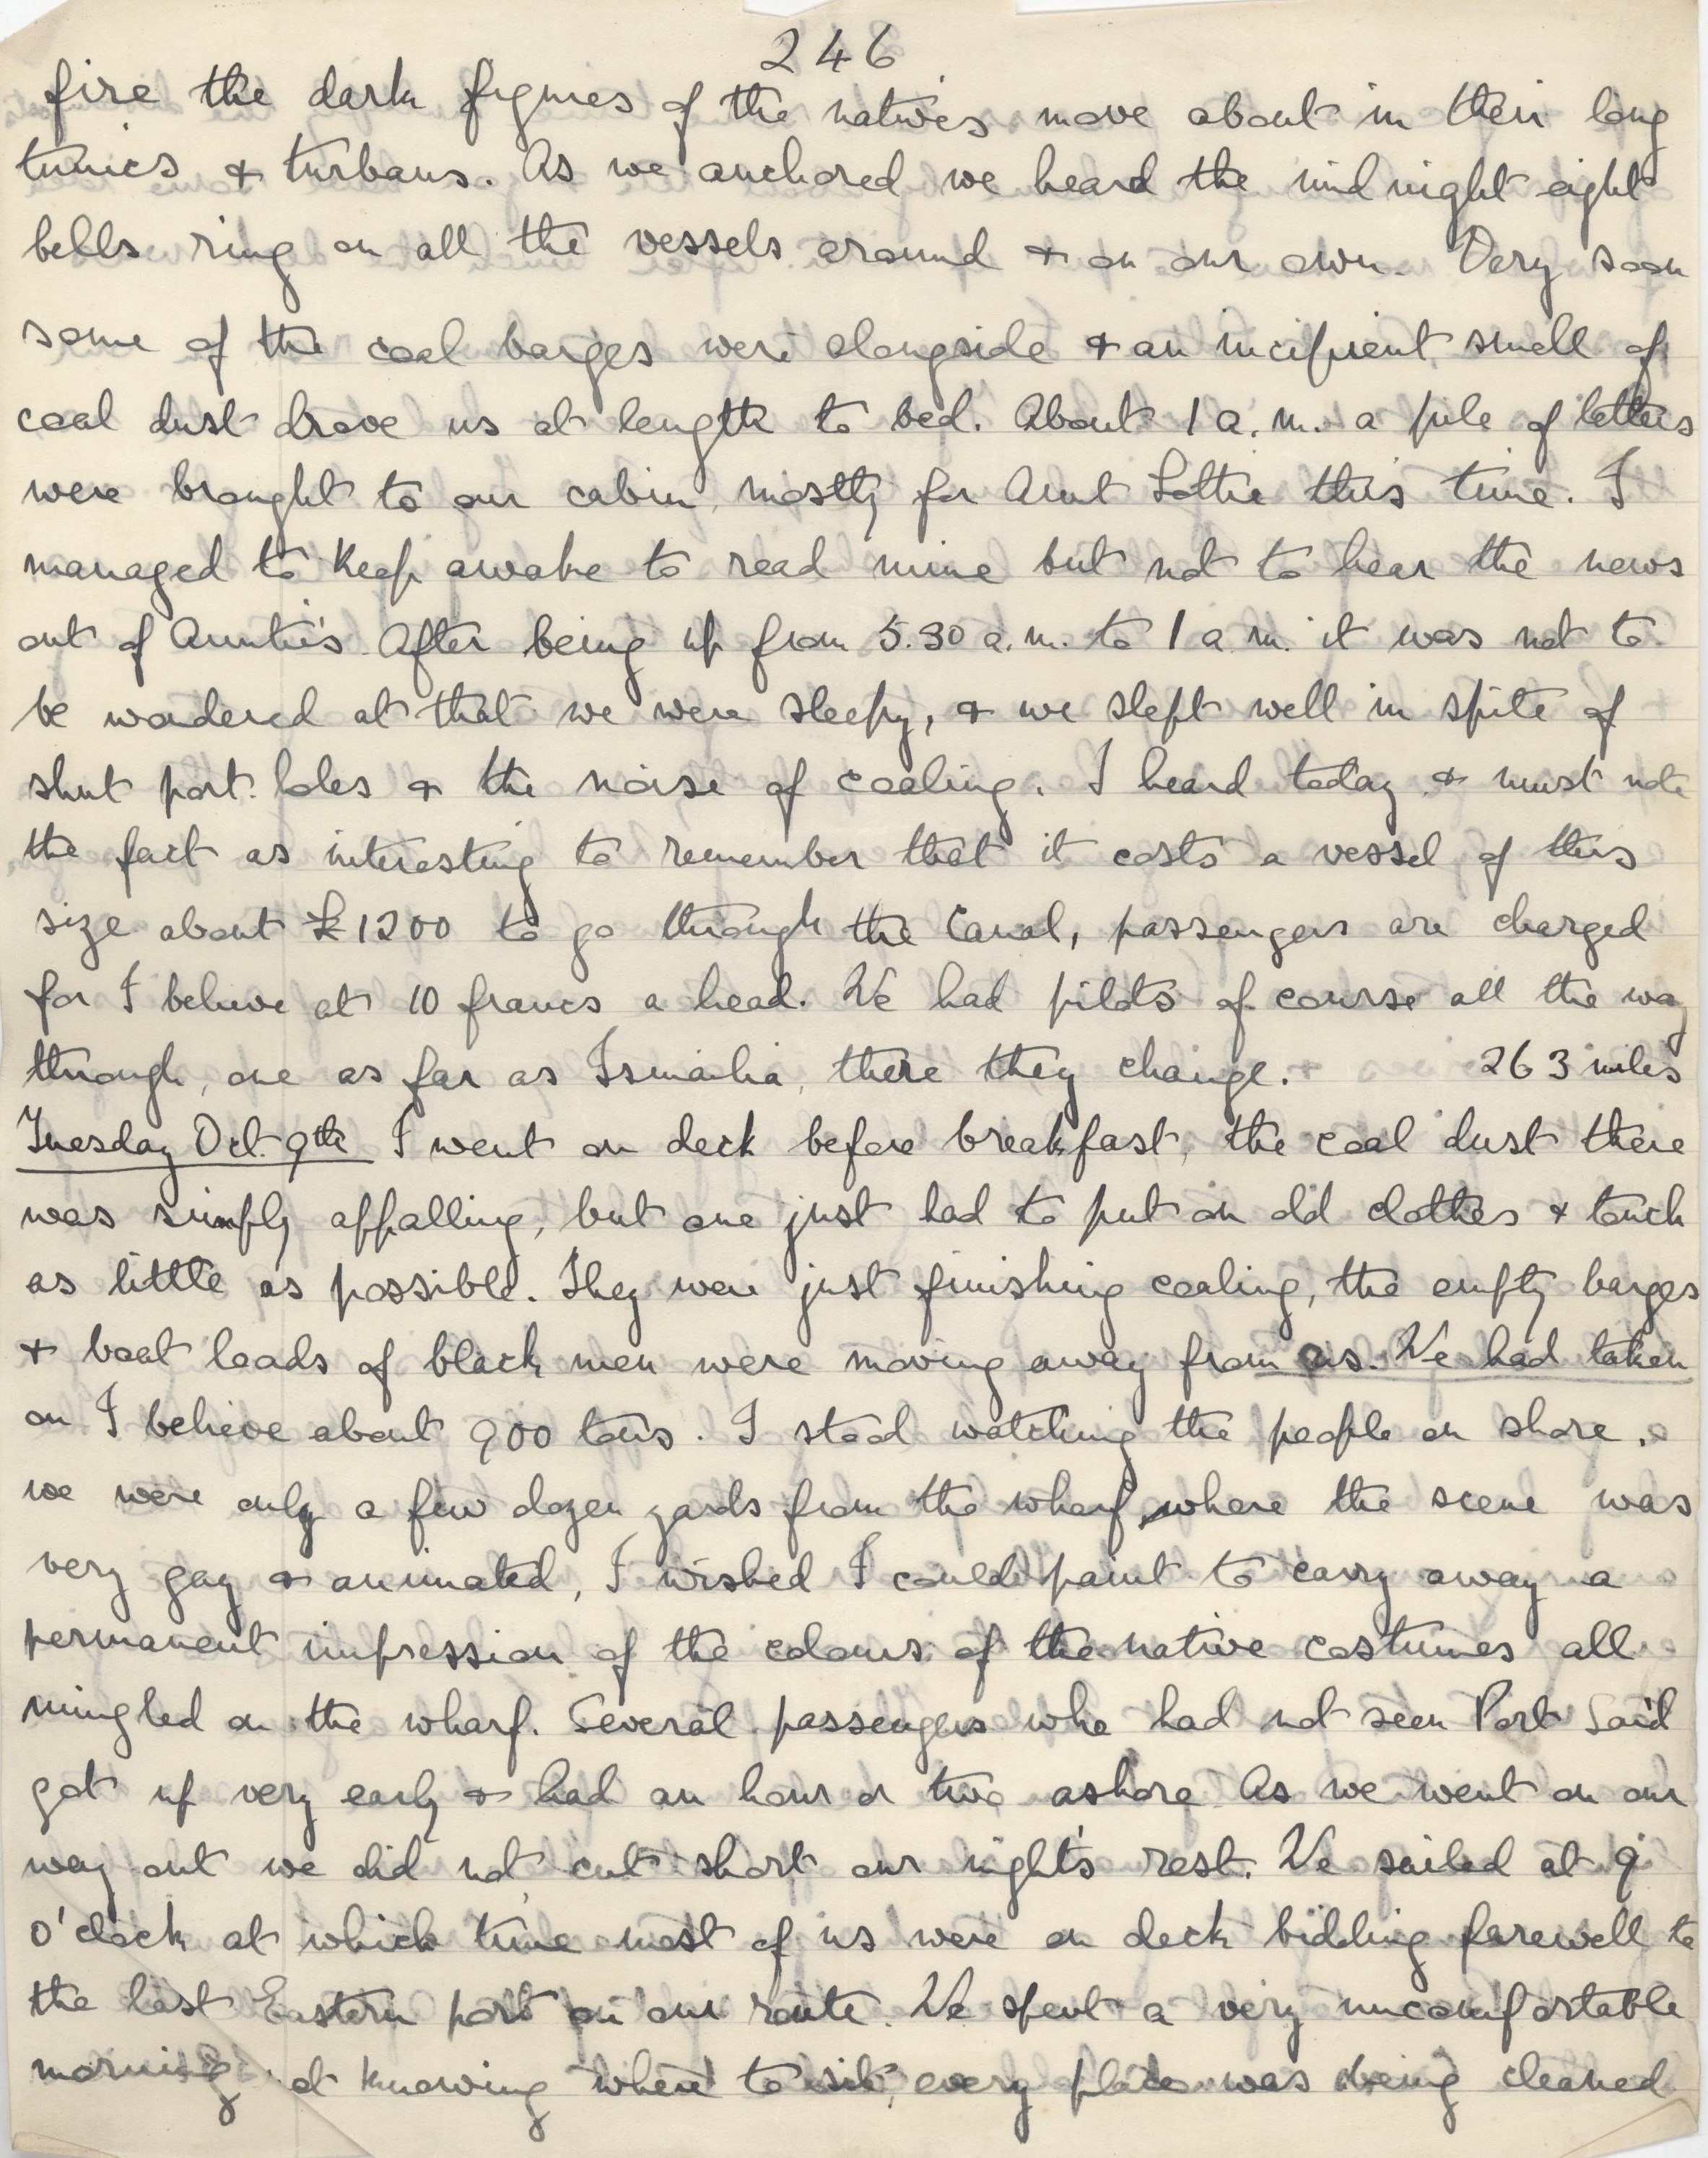 246
fire the dark figures of the natives move about in their long
tunics & turbans. As we anchored we heard the midnight eight
bells ring on all the vessels around & on our own. Very soon
some of the coal barges were alongside & an incipient smell of
coal dust drove us at length to bed. About 1 a.m. a pile of letters
were brought to our cabin, mostly for Aunt Lottie this time. I
managed to keep awake to read mine but not to hear the news
out of Auntie's. After being up from 5.30 a.m. to 1 a.m. it was not to
be wondered at that we were sleepy, & we slept well in spite of
shut port holes & the noise of coaling. I heard today & must note
the fact as interesting to remember that it costs a vessel of this
size about £1200 to go through the Canal, passengers are charged
for I believe at 10 francs a head. We had pilots of course all the way
through, one as far as Ismailia, there they change. 263 miles
Tuesday Oct. 9th I went on deck before breakfast, the coal dust there
was simply appalling, but one just had to put on old clothes & touch
as little as possible. They were just finishing coaling, the empty barges
& boat loads of black men were moving away from us. We had taken
on I believe about 900 tons. I stood watching the people on shore,
we were only a few dozen yards from the wharf, where the scene was
very gay & animated, I wished I could paint to carry away a
permanent impression of the colours of the native costumes all
mingled on the wharf. Several passengers who had not seen Port Said
got up very early & had an hour or two ashore. As we went on our
way out we did not cut short our night's rest. We sailed at 9
o'clock at which time most of us were on deck bidding farewell to
the last Eastern port on our route. We spent a very uncomfortable
morning not knowing where to sit, every place was being cleaned